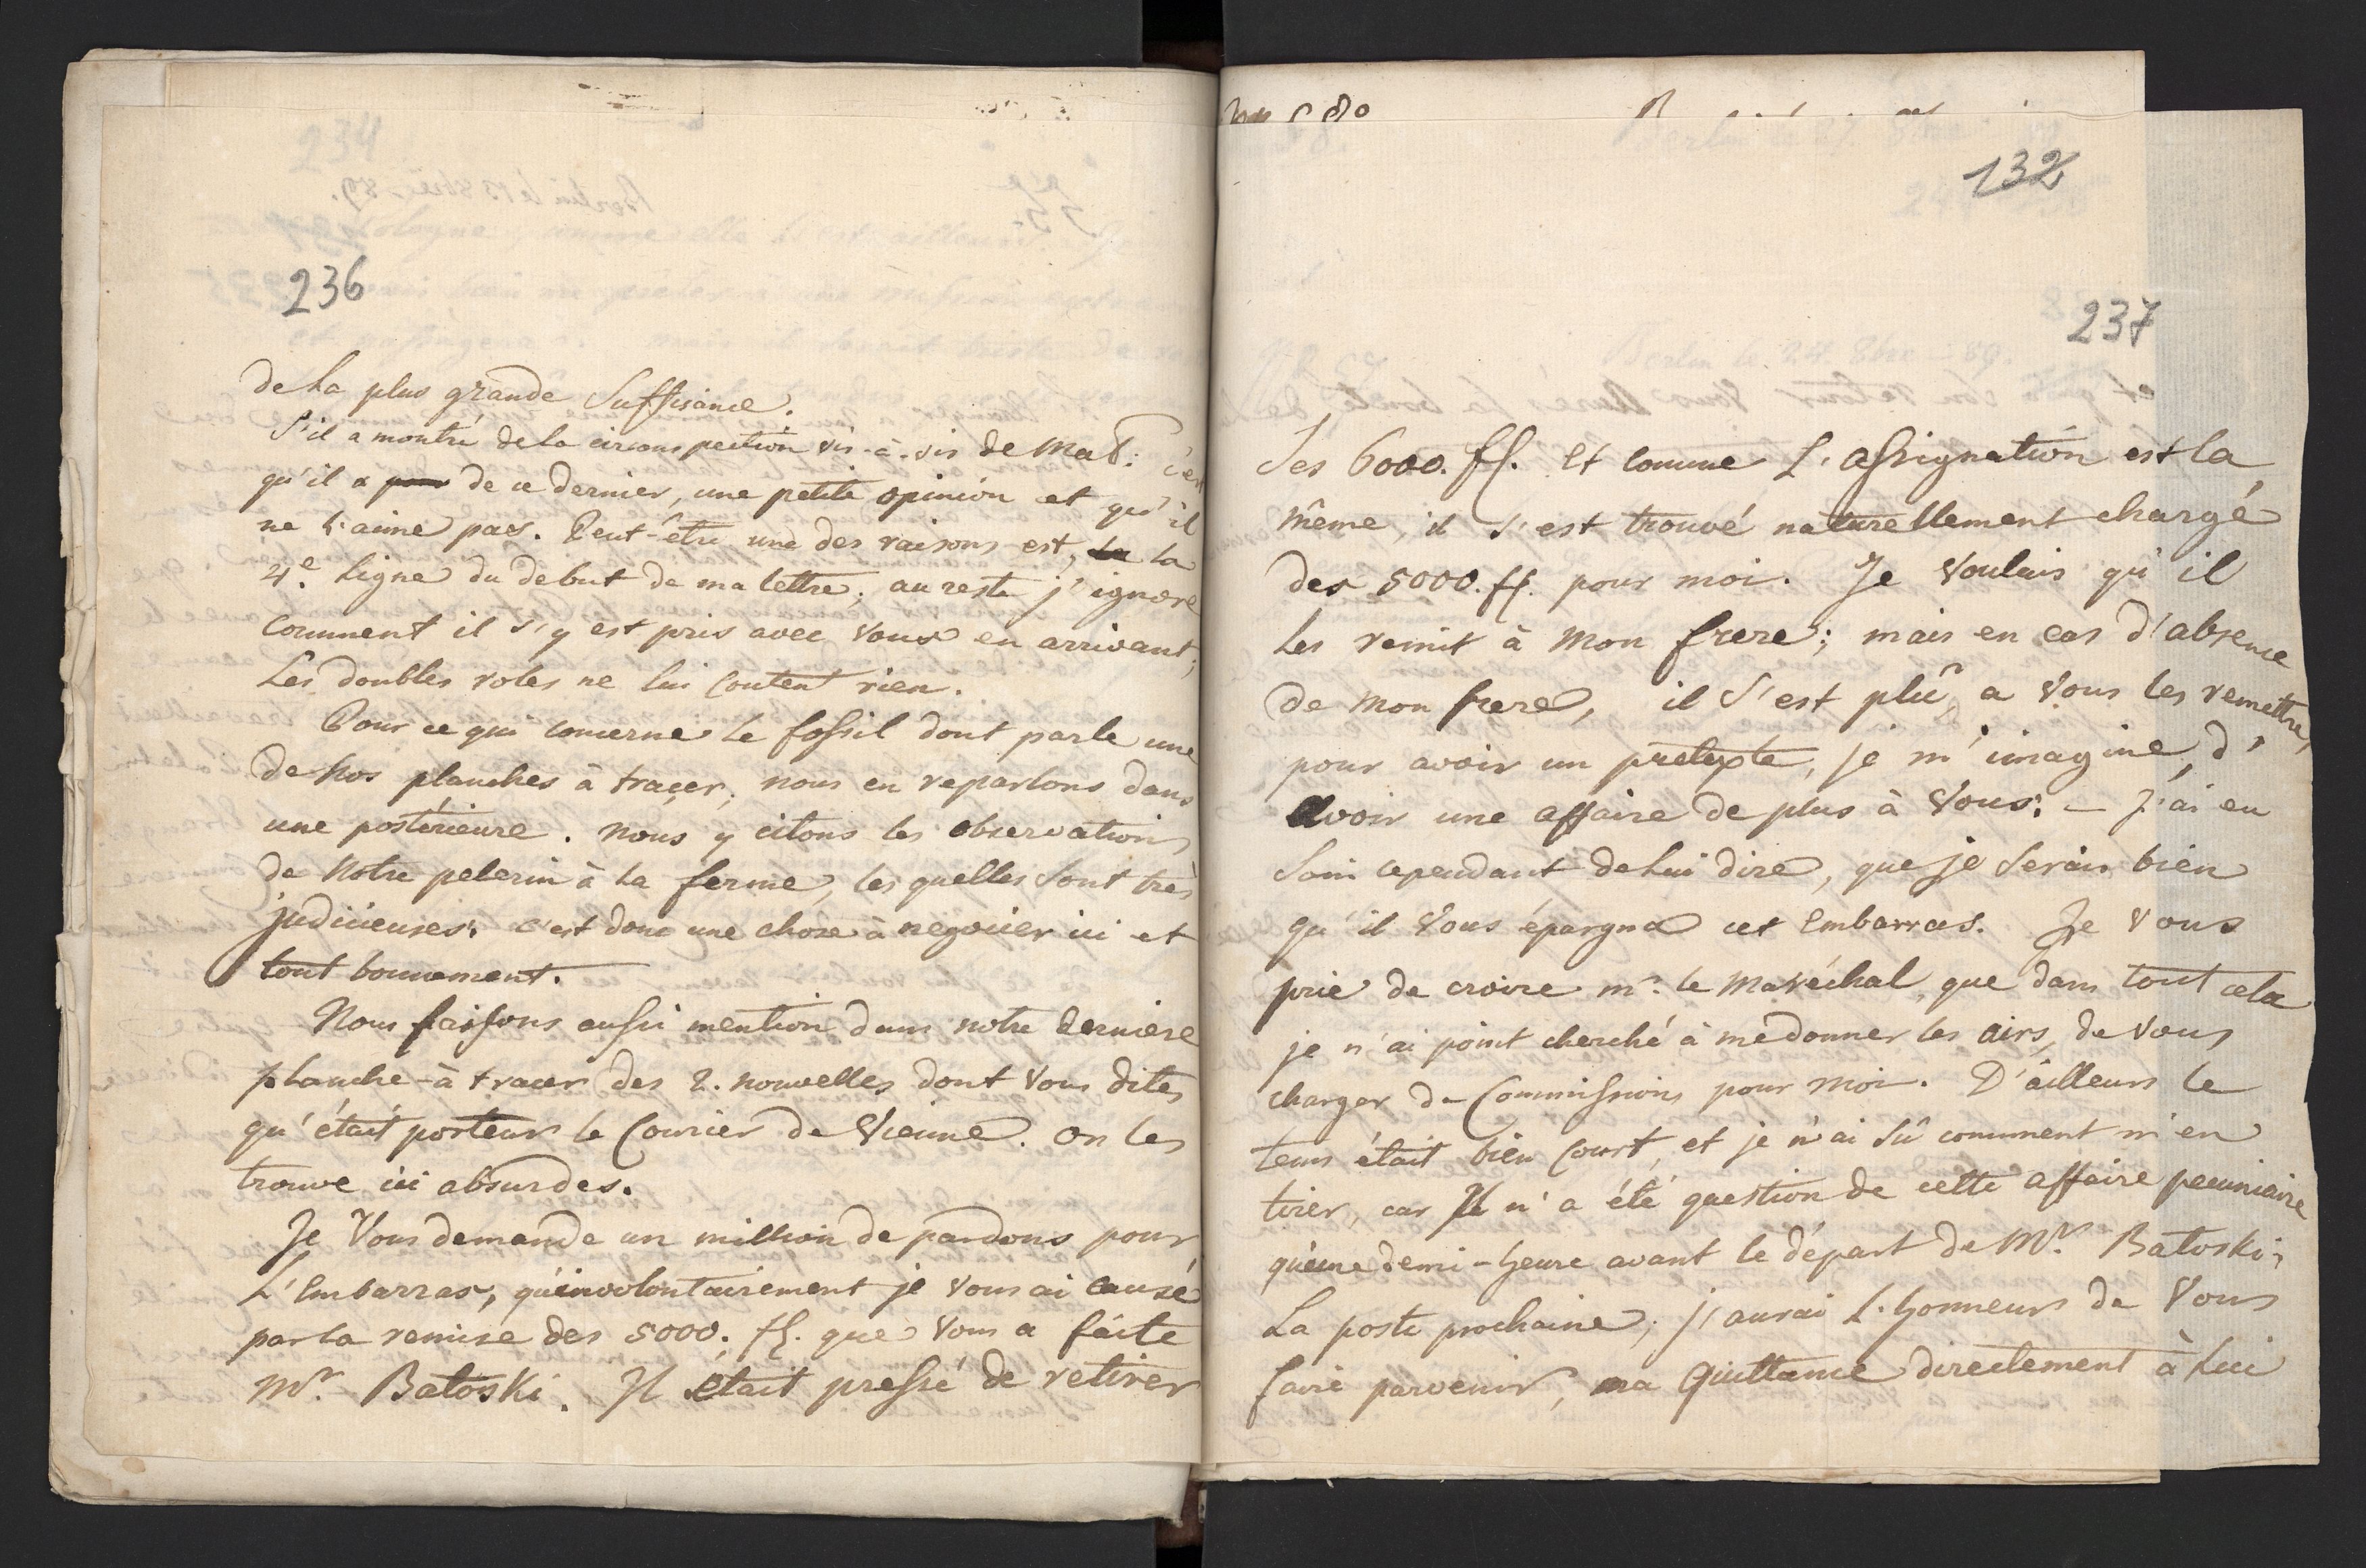 236
de la plus grande Suffisance.
S'il a montré de la circonspection vis-à-vis de Mad: c'est
qu'il a de ce dernier, une petite opinion et qu'il
ne l'aime pas. Peut-être une des raisons est, la
4e. Ligne du debut de ma lettre; au reste j'ignore
Comment il s'y est pris avec Vous en arrivant;
Les doubles roles ne lui Coutent rien.
Pour ce qui concerne le fossil dont parle une
de Nos planches à tracer, nous en reparlons dans
une postérieure. Nous y citons les observations
de Notre pelerin à la ferme, les quelles Sont très
judicieuses: c'est donc une chose à negocier ici et
tout bonnement.
Nous faisons aussi mention dans notre derniere
planche-à tracer des 2. nouvelles dont Vous dites
qu'était porteur le Courier de Vienne. On les
trouve ici absurdes.
Je Vous demande un million de pardons pour
L'Embarras, qu'involontairement je Vous ai causé
par la remise des 5000. ff. que Vous a faite
Mr. Batoski. Il était pressé de retirer
132
237
Ses 6000. ff. et comme L'assignation est la
même, il s'est trouvé naturellement chargé
des 5000. ff. pour moi. Je Voulais qu'il
les remit à Mon frere; mais en cas d'absence
de Mon frere, il S'est plû, a Vous les remettre,
pour avoir un prétexte, je m'imagine, d'
avoir une affaire de plus à Vous: – J'ai eu
Soin cependant de lui dire, que je Serais bien
qu'il Vous épargna cet Embarras. Je Vous
prie de croire mr. le Maréchal, que dans tout cela
je n'ai point cherché à me donner les airs, de Vous
charger de Commissions pour Moi. D'ailleurs le
tems était bien Court, et je n'ai Sû comment m'en
tirer, car Il n'a été question de cette affaire pecuniaire
qu'une demi-heure avant le départ de Mr. Batoski;
La poste prochaine, j'aurai L'honneur de Vous
faire parvenir, ma Quittance directement à lui